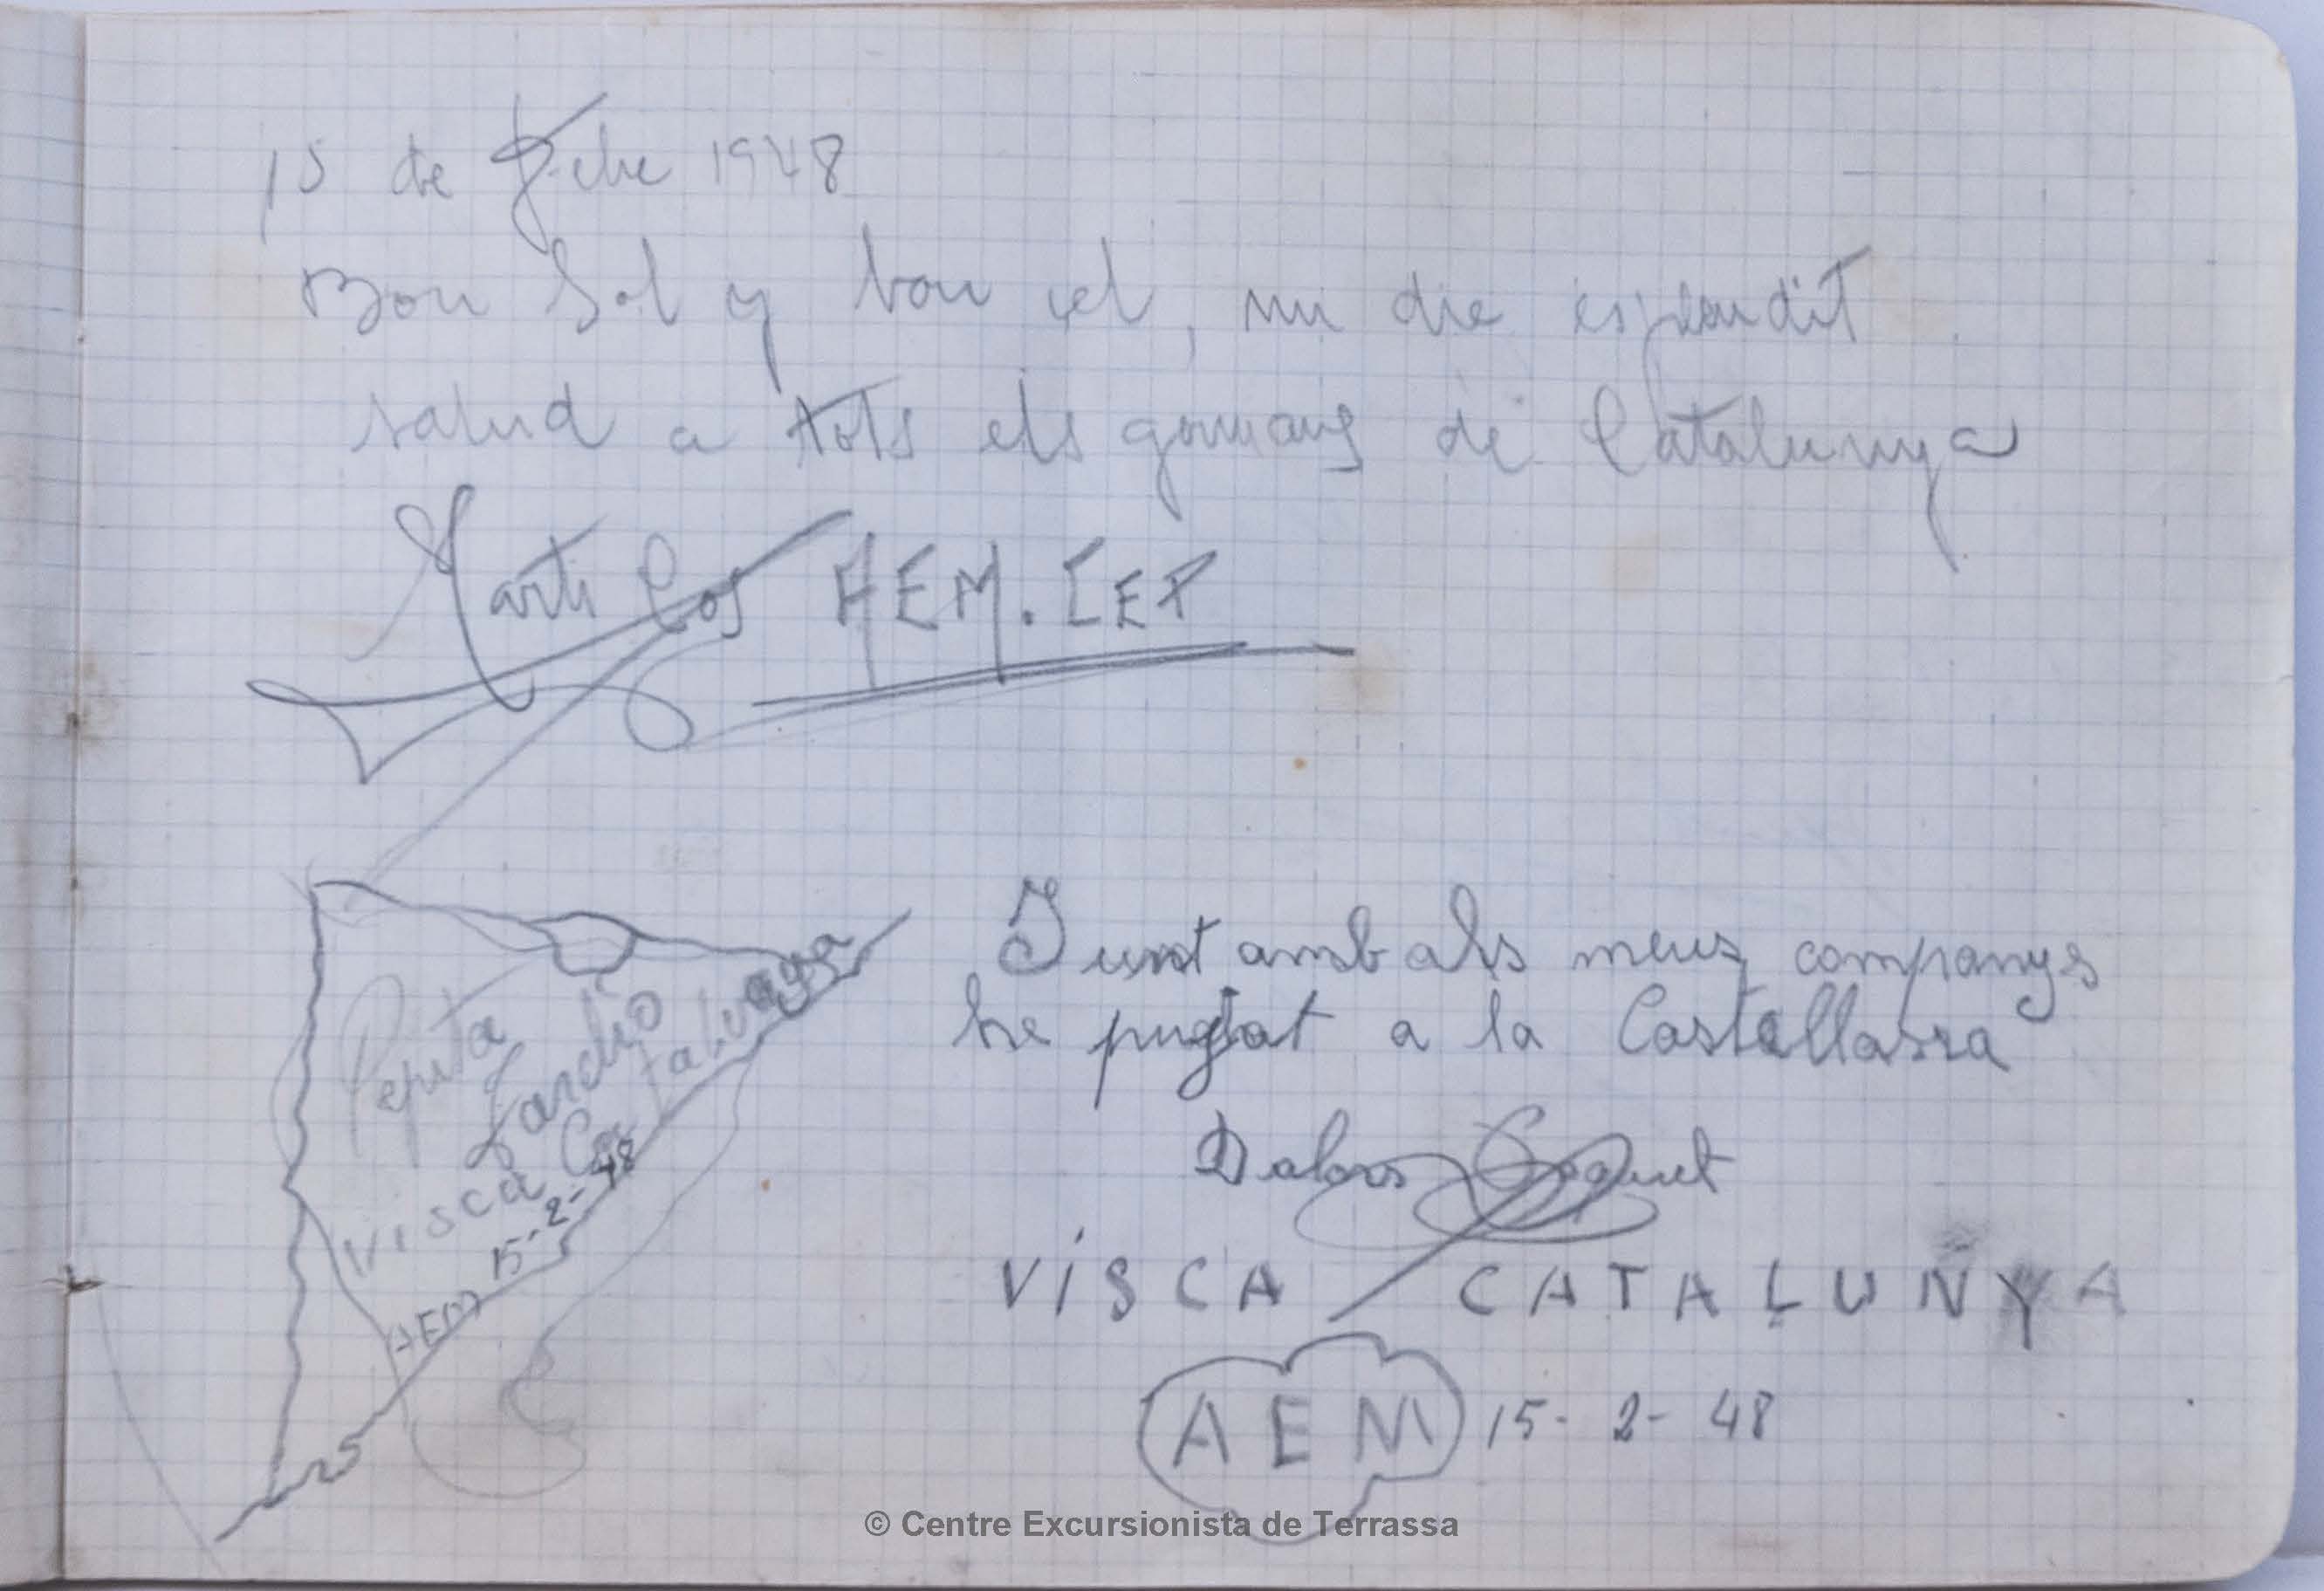 15 de Febre 1948
Bon Sol y bon cel, un die esplendit
salud a tots els gomans de Catalunya
Marti Cos AEM. CEP
Pepita
Sancho
Visca Catalunya
AEM 15-2-48
Junt amb als meus companys
he pugat a la Castellassa
Dolors Coquet
VISCA CATALUÑYA
AEM 15-2-48
© Centre Excursionista de Terrassa